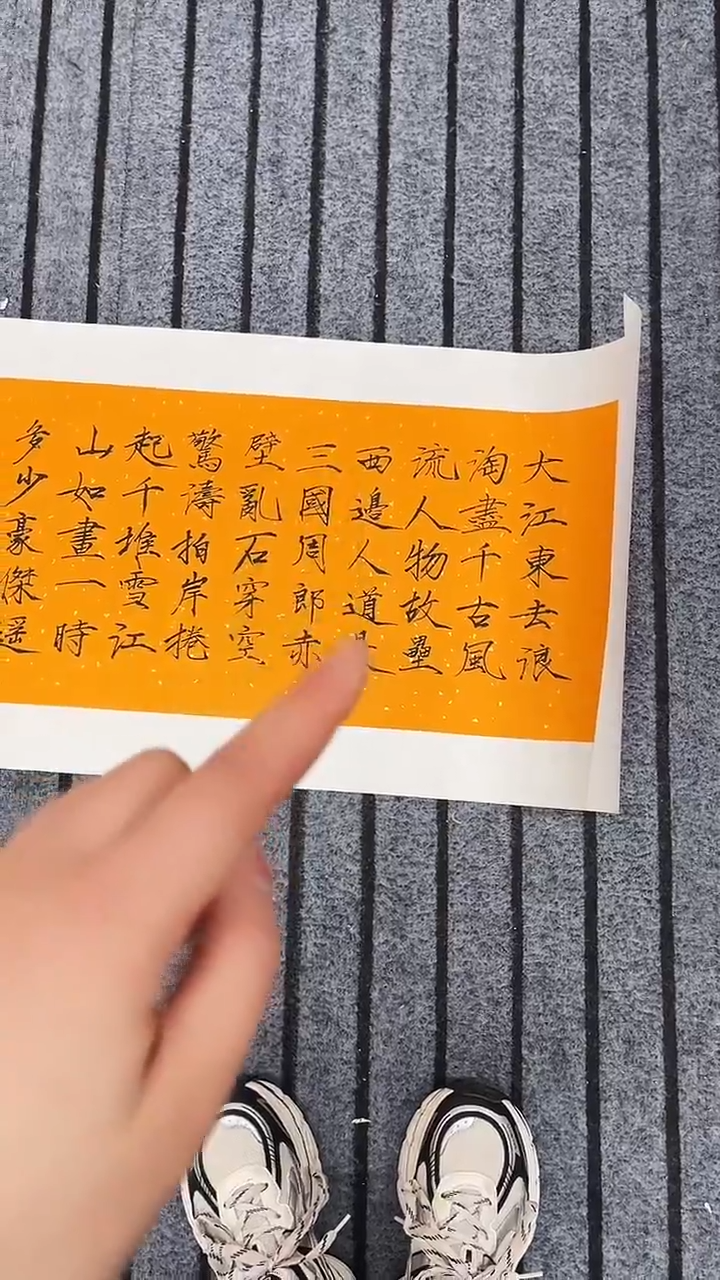 大江東去浪
淘盡千古風
流人物故壘
西邊人道是
三國周郎赤
壁亂石穿空
驚濤拍岸捲
起千堆雪江
山如畫一時
多少豪傑遙